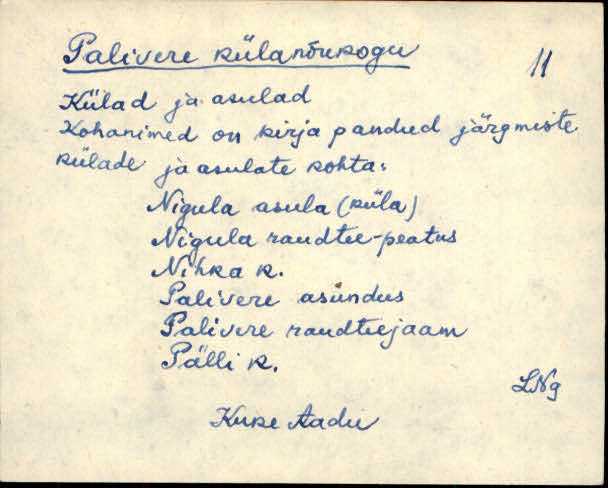 Palivere külanõukogu
11
Külad ja asulad
Kohanimed on kirja pandud järgmiste
külade ja asulate kohta:
Nigula asula (küla)
Nigula raudtee-peatus
Nihka k.
Palivere asundus
Palivere raudteejaam
Pälli k.
LNg
Kuke Aadu